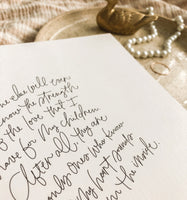 one else will ever
know the strength
of the love that I
have for my children
After all, they are
only ones who know
my heart sounds
from the inside.